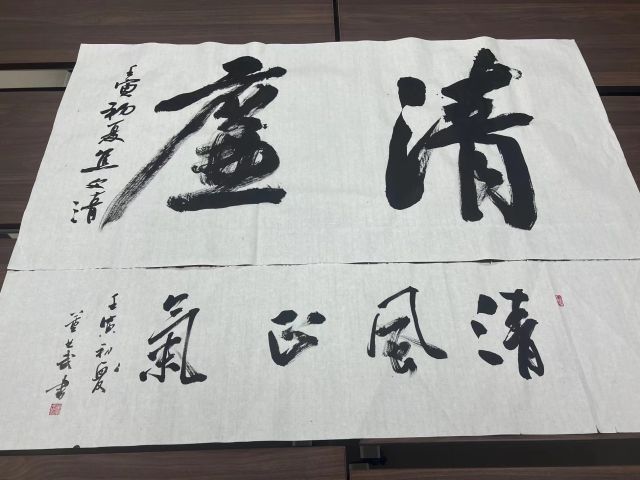 清廉
壬寅初夏
清風正氣
壬寅初夏
書